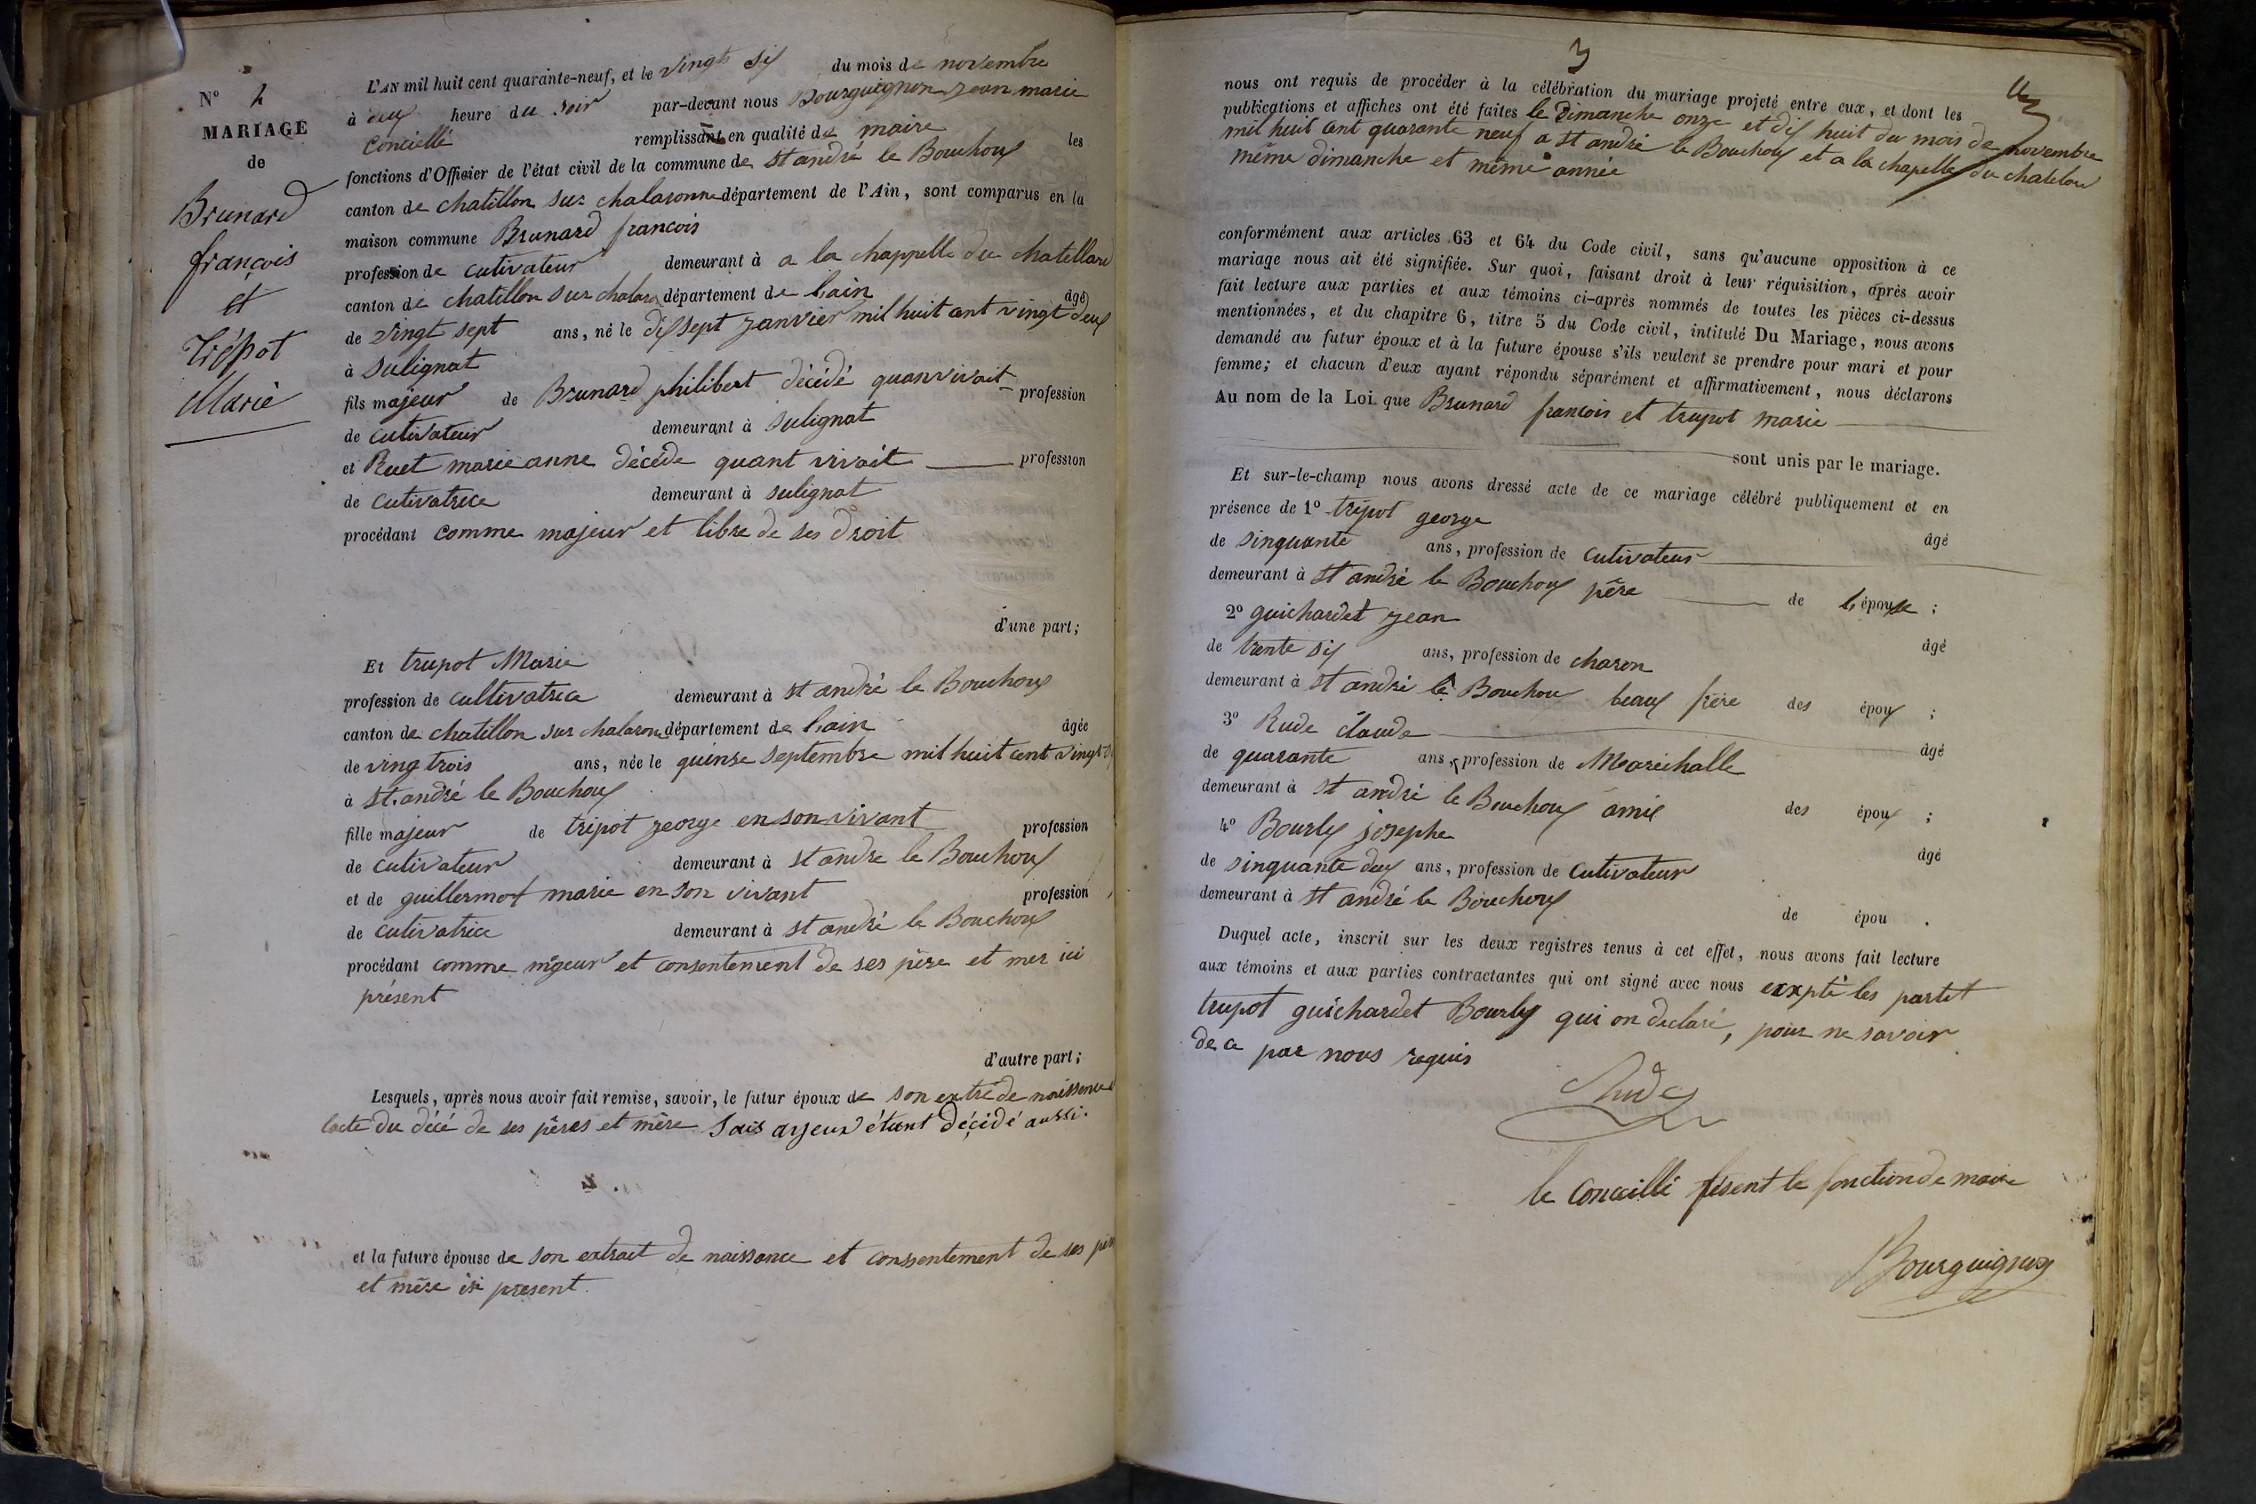 N° 4
MARIAGE
de
Brunard
françois
et
Trépot
Marie
L'AN mil huit cent quarante-neuf, et le vingt six du mois de novembre
à deux heure du soir par-devant nous Bourguignon jean marie
Concielle remplissant en qualité de maire les
fonctions d'Officier de l'état civil de la commune de st andré le Bouchoux
canton de chatillon sur chalaronne département de l'Ain, sont comparus en la
maison commune Brunard francois
profession de cutivateur demeurant à a la chappelle du chatellard
canton de chatillon sur chalaro département de lain âgé
de vingt sept ans, né le dix sept janvier mil huit cent vingt deux
à Sulignat
fils majeur de Brunard philibert décédé quanvivait profession
de cutivateur demeurant à sulignat
et Ruet marie anne décéde quant vivait profession
de cutivatrice demeurant à sulignat
procédant comme majeur et libre de ses droit
d'une part;
Et trupot Marie
profession de cultivatrice demeurant à st andré le Bouchoux
canton de chatillon sur chalarone département de lain âgée
de ving trois ans, née le quinse septembre mil huit cent vingt
à st. andré le Bouchoux
fille majeur de tripot george en son vivant profession
de cutivateur demeurant à st andre le Bouchoux
et de guillermot marie en son vivant profession
de cutivatrice demeurant à st andré le Bouchoux
procédant comme mageur et consentement de ses père et mer ici
présent
d'autre part;
Lesquels, après nous avoir fait remise, savoir, le futur époux de son extré de naissence
lacte du décé de ses pères et mère Sais ayeux étant décédé aussi.
et la future épouse de son extrait de naissance et consentement de ses père
et mère isi present.
3
nous ont requis de procéder à la célébration du mariage projeté entre eux, et dont les
publications et affiches ont été faites le Dimanche onze et dix huit du mois de novembre
mil huit cent quarante neuf a st andré le Bouchoux et a la chapelle du chatelard
même dimanche et même année
conformément aux articles 63 et 64 du Code civil, sans qu'aucune opposition à ce
mariage nous ait été signifiée. Sur quoi, faisant droit à leur réquisition, après avoir
fait lecture aux parties et aux témoins ci-après nommés de toutes les pièces ci-dessus
mentionnées, et du chapitre 6, titre 5 du Code civil, intitulé Du Mariage, nous avons
demandé au futur époux et à la future épouse s'ils veulent se prendre pour mari et pour
femme; et chacun d'eux ayant répondu séparément et affirmativement, nous déclarons
Au nom de la Loi que Brunard francois et trupot marie
sont unis par le mariage.
Et sur-le-champ nous avons dressé acte de ce mariage célébré publiquement et en
présence de 1° tripot george âgé
de sinquante ans, profession de cutivateur
demeurant à st andré le Bouchoux père de l'épouse ;
2° guichardet jean âgé
de trente six ans, profession de charon
demeurant à st andré le Bouchou beaux frère des époux ;
3° Rude claude âgé
de quarante ans, profession de Maréchalle
demeurant à st andré le Bouchoux amie des époux ;
4° Bourly josephe âgé
de sinquante deux ans, profession de cutivateur
demeurant à st andré le Bouchoux de épou .
Duquel acte, inscrit sur les deux registres tenus à cet effet, nous avons fait lecture
aux témoins et aux parties contractantes qui ont signé avec nous exxpté les partet
trupot guichardet Bourly qui on declaré, pour ne savoir
de ce par nous requis
Rude
le Concillé fesent le fonction de maire
Bourguignon